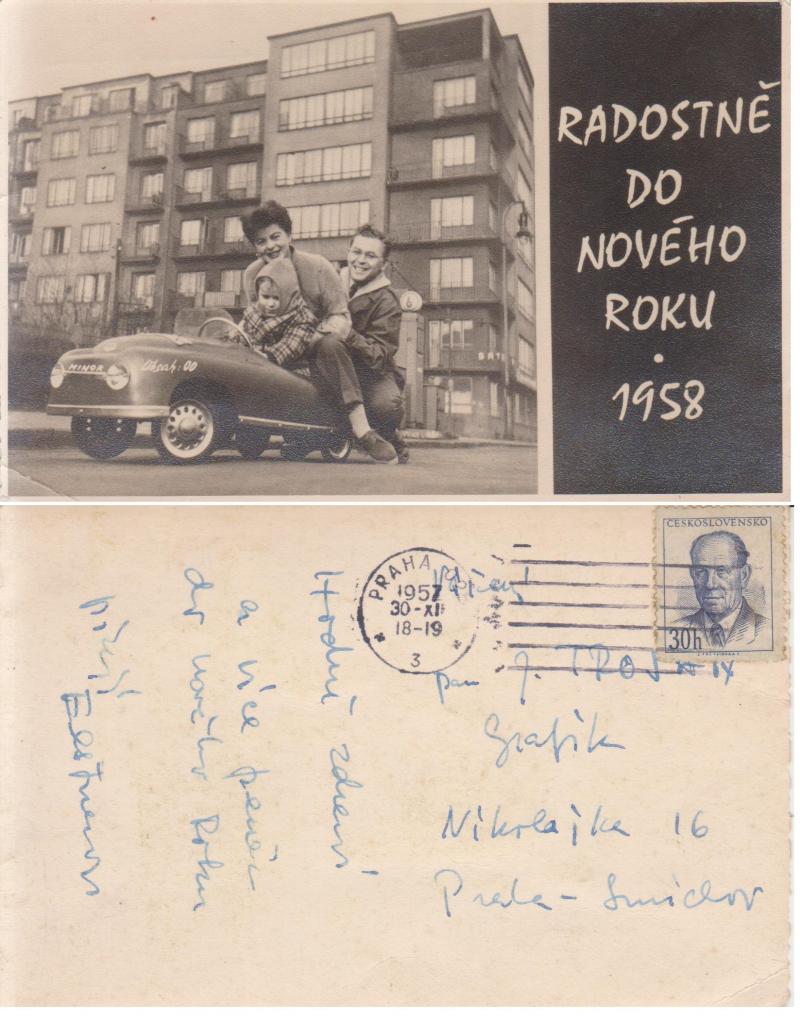 RADOSTNĚ
DO
NOVÉHO
ROKU
•
1958
MINOR
Obsah: 00
Hodně zdraví
a více peněz
do nového Roku
přejí
PRAHA
1957
30-XII
18-19
3
ČESKOSLOVENSKO
30h
Vážený
pan J. TROJAN
Grafik
Nikolajka 16
Praha - Smíchov